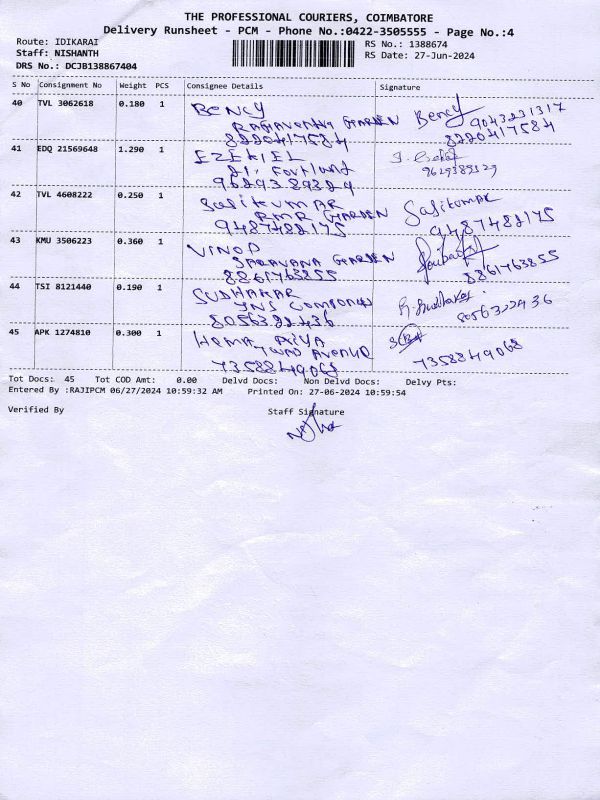 THE PROFESSIONAL COURIERS, COIMBATORE
Delivery Runsheet - PCM - Phone No.:0422-3505555 - Page No.:4
Route: IDIKARAI
RS No.: 1388674
Staff: NISHANTH
RS Date: 27-Jun-2024
DRS No.: DCJB138867404
S No Consignment No Weight PCS Consignee Details Signature
40 TVL 3062618 0.180 1 BENCY Bency 9043231317
GARDEN 8220417584
8220417584
41 EDQ 21569648 1.290 1 EZEKIEL
9629389329
9629389329
42 TVL 4608222 0.250 1 SASIKUMAR Sasikumar
RMR GARDEN 9487482175
9487482175
43 KMU 3506223 0.360 1 VINOD
SARAVANA GARDEN 8861763855
8861763855
44 TSI 8121440 0.190 1 SUDHAKAR
8056322436
8056322436
45 APK 1274810 0.300 1 HEMA PRIYA
AVENUE 7358849068
7358849068
Tot Docs: 45 Tot COD Amt: 0.00 Delvd Docs: Non Delvd Docs: Delvy Pts:
Entered By :RAJIPCM 06/27/2024 10:59:32 AM Printed On: 27-06-2024 10:59:54
Verified By Staff Signature